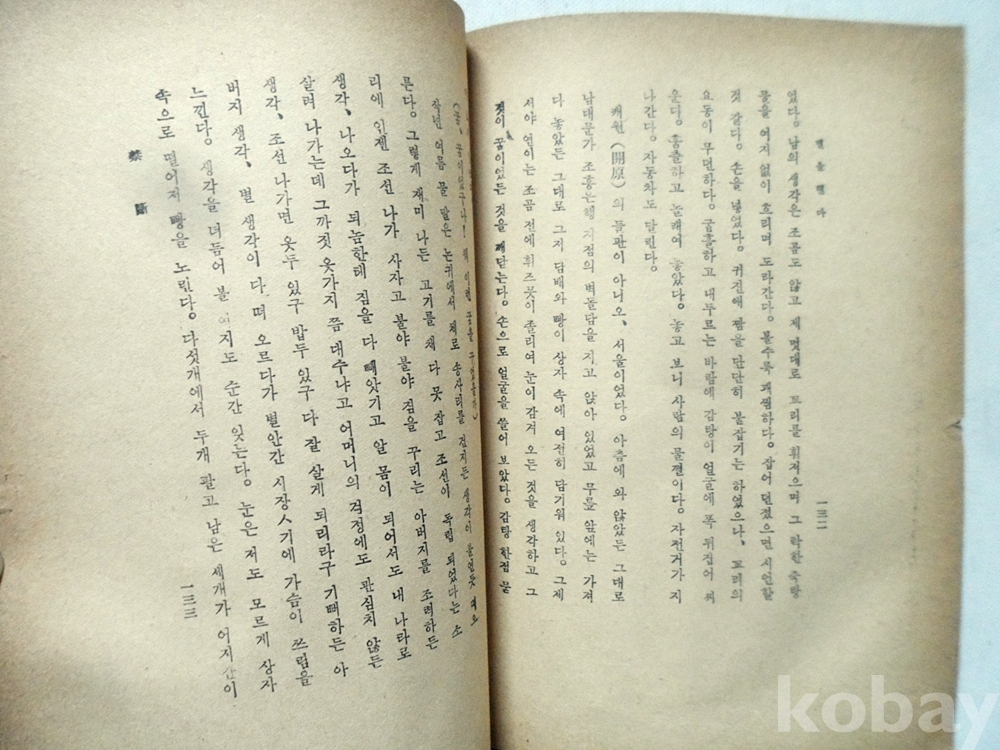 별을 헨다
一三二
었다。남의 생각은 조곰도 않고 제 멋대로 꼬리를 휘저으며 그 탁한 국탕
물을 여지 없이 흐리며 도라간다。볼수록 괘씸하다。잡어 던졌으면 시언할
것 같다。손을 넣었다。귀진애 짬을 단단히 붙잡기는 하였으나、꼬리의
요동이 무던하다。굼틀하고 내두르는 바람에 감탕이 얼굴에 폭 뒤집어 씨
운다。흠츨하고 놀래여 놓았다。놓고 보니 사람의 물껼이다。자전거가 지
나간다。자동차도 달린다。
개원(開原)의 들판이 아니오、서울이었다。아츰에 와 앉았든 그대로
남대문가 조흥은행 지점의 벽돌담을 지고 앉아 있었고 무릎 앞에는 가져
다 놓았든 그대로 그지 담배와 빵이 상자 속에 여전히 담기워 있다。그제
서야 연이는 조곰 전에 휘즈믓이 졸리여 눈이 감겨 오든 것을 생각하고 그
것이 꿈이었든 것을 깨닫는다。손으로 얼굴을 쓸어 보았다。감탕 한점 물
(꿈、꿈이었구나! 왜 이런 꿈을 꾸었을까)
작년 여름 물 맑은 논귀에서 채로 송사리를 건지든 생각이 들인듯 떠오
른다。그렇게 재미 나든 고기를 채 다 못 잡고 조선이 독립 되었다는 소
리에 인젠 조선 나가 사자고 불야 불야 짐을 꾸리는 아버지를 조력하든
생각、나오다가 되놈한테 짐을 다 빼앗기고 알 몸이 되어서도 내 나라로
살려 나가는데 그까짓 옷가지 쯤 대수냐고 어머니의 걱정에도 관심치 않든
생각、조선 나가면 옷두 있구 밥두 있구 다 잘 살게 되리라구 기뻐하든 아
버지 생각、별 생각이 다 떠 오르다가 별안간 시장ㅅ기에 가슴이 쓰림을
느낀다。생각을 더듬어 볼 여지도 순간 잊는다。눈은 저도 모르게 상자
속으로 떨어저 빵을 노린다。다섯개에서 두개 팔고 남은 세개가 어지간이
禁斷
一三三
kobay